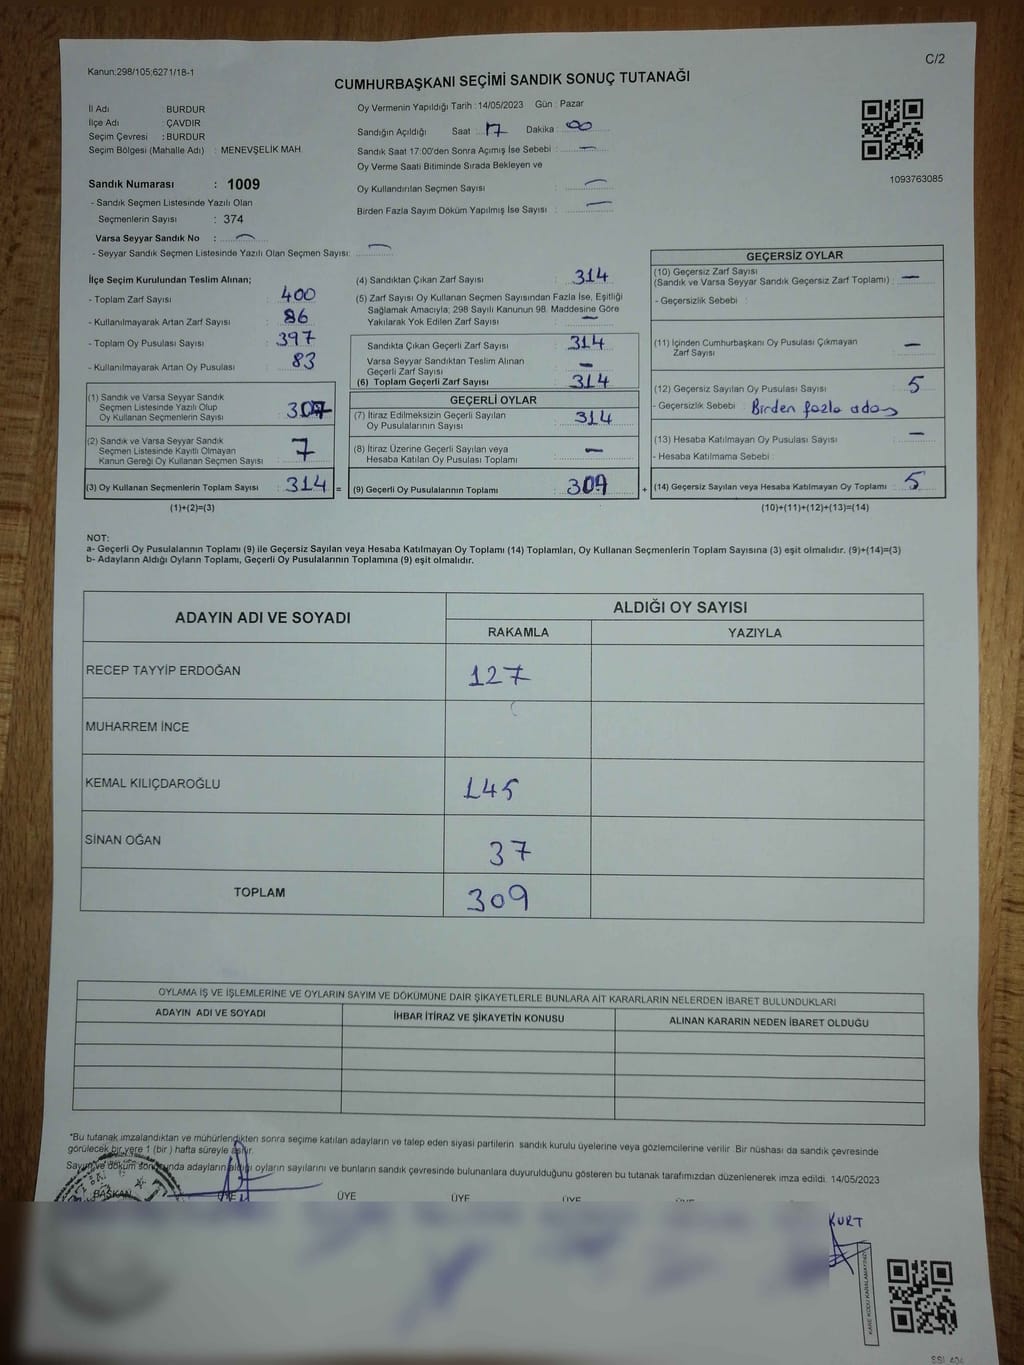 Kanun:298/105;6271/18-1
C/2
CUMHURBAŞKANI SEÇİMİ SANDIK SONUÇ TUTANAĞI
İl Adı : BURDUR
İlçe Adı : ÇAVDIR
Seçim Çevresi : BURDUR
Seçim Bölgesi (Mahalle Adı) : MENEVŞELİK MAH.
Sandık Numarası : 1009
- Sandık Seçmen Listesinde Yazılı Olan
Seçmenlerin Sayısı : 374
Varsa Seyyar Sandık No : —
- Seyyar Sandık Seçmen Listesinde Yazılı Olan Seçmen Sayısı: —
Oy Vermenin Yapıldığı Tarih : 14/05/2023 Gün : Pazar
Sandığın Açıldığı Saat : 17 Dakika : 00
Sandık Saat 17:00'den Sonra Açımış İse Sebebi : —
Oy Verme Saati Bitiminde Sırada Bekleyen ve
Oy Kullandırılan Seçmen Sayısı : —
Birden Fazla Sayım Döküm Yapılmış İse Sayısı : —
1093763085
İlçe Seçim Kurulundan Teslim Alınan;
- Toplam Zarf Sayısı : 400
- Kullanılmayarak Artan Zarf Sayısı : 86
- Toplam Oy Pusulası Sayısı : 397
- Kullanılmayarak Artan Oy Pusulası : 83
(1) Sandık ve Varsa Seyyar Sandık
Seçmen Listesinde Yazılı Olup
Oy Kullanan Seçmenlerin Sayısı : 307
(2) Sandık ve Varsa Seyyar Sandık
Seçmen Listesinde Kayıtlı Olmayan
Kanun Gereği Oy Kullanan Seçmen Sayısı : 7
(3) Oy Kullanan Seçmenlerin Toplam Sayısı : 314 =
(1)+(2)=(3)
(4) Sandıktan Çıkan Zarf Sayısı : 314
(5) Zarf Sayısı Oy Kullanan Seçmen Sayısından Fazla İse, Eşitliği
Sağlamak Amacıyla; 298 Sayılı Kanunun 98. Maddesine Göre
Yakılarak Yok Edilen Zarf Sayısı : —
Sandıkta Çıkan Geçerli Zarf Sayısı : 314
Varsa Seyyar Sandıktan Teslim Alınan
Geçerli Zarf Sayısı : —
(6) Toplam Geçerli Zarf Sayısı : 314
GEÇERLİ OYLAR
(7) İtiraz Edilmeksizin Geçerli Sayılan
Oy Pusulalarının Sayısı : 314
(8) İtiraz Üzerine Geçerli Sayılan veya
Hesaba Katılan Oy Pusulası Toplamı : —
(9) Geçerli Oy Pusulalarının Toplamı : 309 +
GEÇERSİZ OYLAR
(10) Geçersiz Zarf Sayısı
(Sandık ve Varsa Seyyar Sandık Geçersiz Zarf Toplamı) : —
- Geçersizlik Sebebi :
(11) İçinden Cumhurbaşkanı Oy Pusulası Çıkmayan
Zarf Sayısı : —
(12) Geçersiz Sayılan Oy Pusulası Sayısı : 5
- Geçersizlik Sebebi : Birden fazla aday
(13) Hesaba Katılmayan Oy Pusulası Sayısı : —
- Hesaba Katılmama Sebebi :
(14) Geçersiz Sayılan veya Hesaba Katılmayan Oy Toplamı : 5
(10)+(11)+(12)+(13)=(14)
NOT:
a- Geçerli Oy Pusulalarının Toplamı (9) ile Geçersiz Sayılan veya Hesaba Katılmayan Oy Toplamı (14) Toplamları, Oy Kullanan Seçmenlerin Toplam Sayısına (3) eşit olmalıdır. (9)+(14)=(3)
b- Adayların Aldığı Oyların Toplamı, Geçerli Oy Pusulalarının Toplamına (9) eşit olmalıdır.
ADAYIN ADI VE SOYADI
ALDIĞI OY SAYISI
RAKAMLA YAZIYLA
RECEP TAYYİP ERDOĞAN 127
MUHARREM İNCE
KEMAL KILIÇDAROĞLU 145
SİNAN OĞAN 37
TOPLAM 309
OYLAMA İŞ VE İŞLEMLERİNE VE OYLARIN SAYIM VE DÖKÜMÜNE DAİR ŞİKAYETLERLE BUNLARA AİT KARARLARIN NELERDEN İBARET BULUNDUKLARI
ADAYIN ADI VE SOYADI İHBAR İTİRAZ VE ŞİKAYETİN KONUSU ALINAN KARARIN NEDEN İBARET OLDUĞU
*Bu tutanak imzalandıktan ve mühürlendikten sonra seçime katılan adayların ve talep eden siyasi partilerin sandık kurulu üyelerine veya gözlemcilerine verilir. Bir nüshası da sandık çevresinde
görülecek bir yere 1 (bir) hafta süreyle asılır.
Sayım ve döküm sonrasında adayların aldığı oyların sayılarını ve bunların sandık çevresinde bulunanlara duyurulduğunu gösteren bu tutanak tarafımızdan düzenlenerek imza edildi. 14/05/2023
BAŞKAN ÜYE ÜYE ÜYE ÜYE
KURT
KARE KODU KARALAMAYINIZ